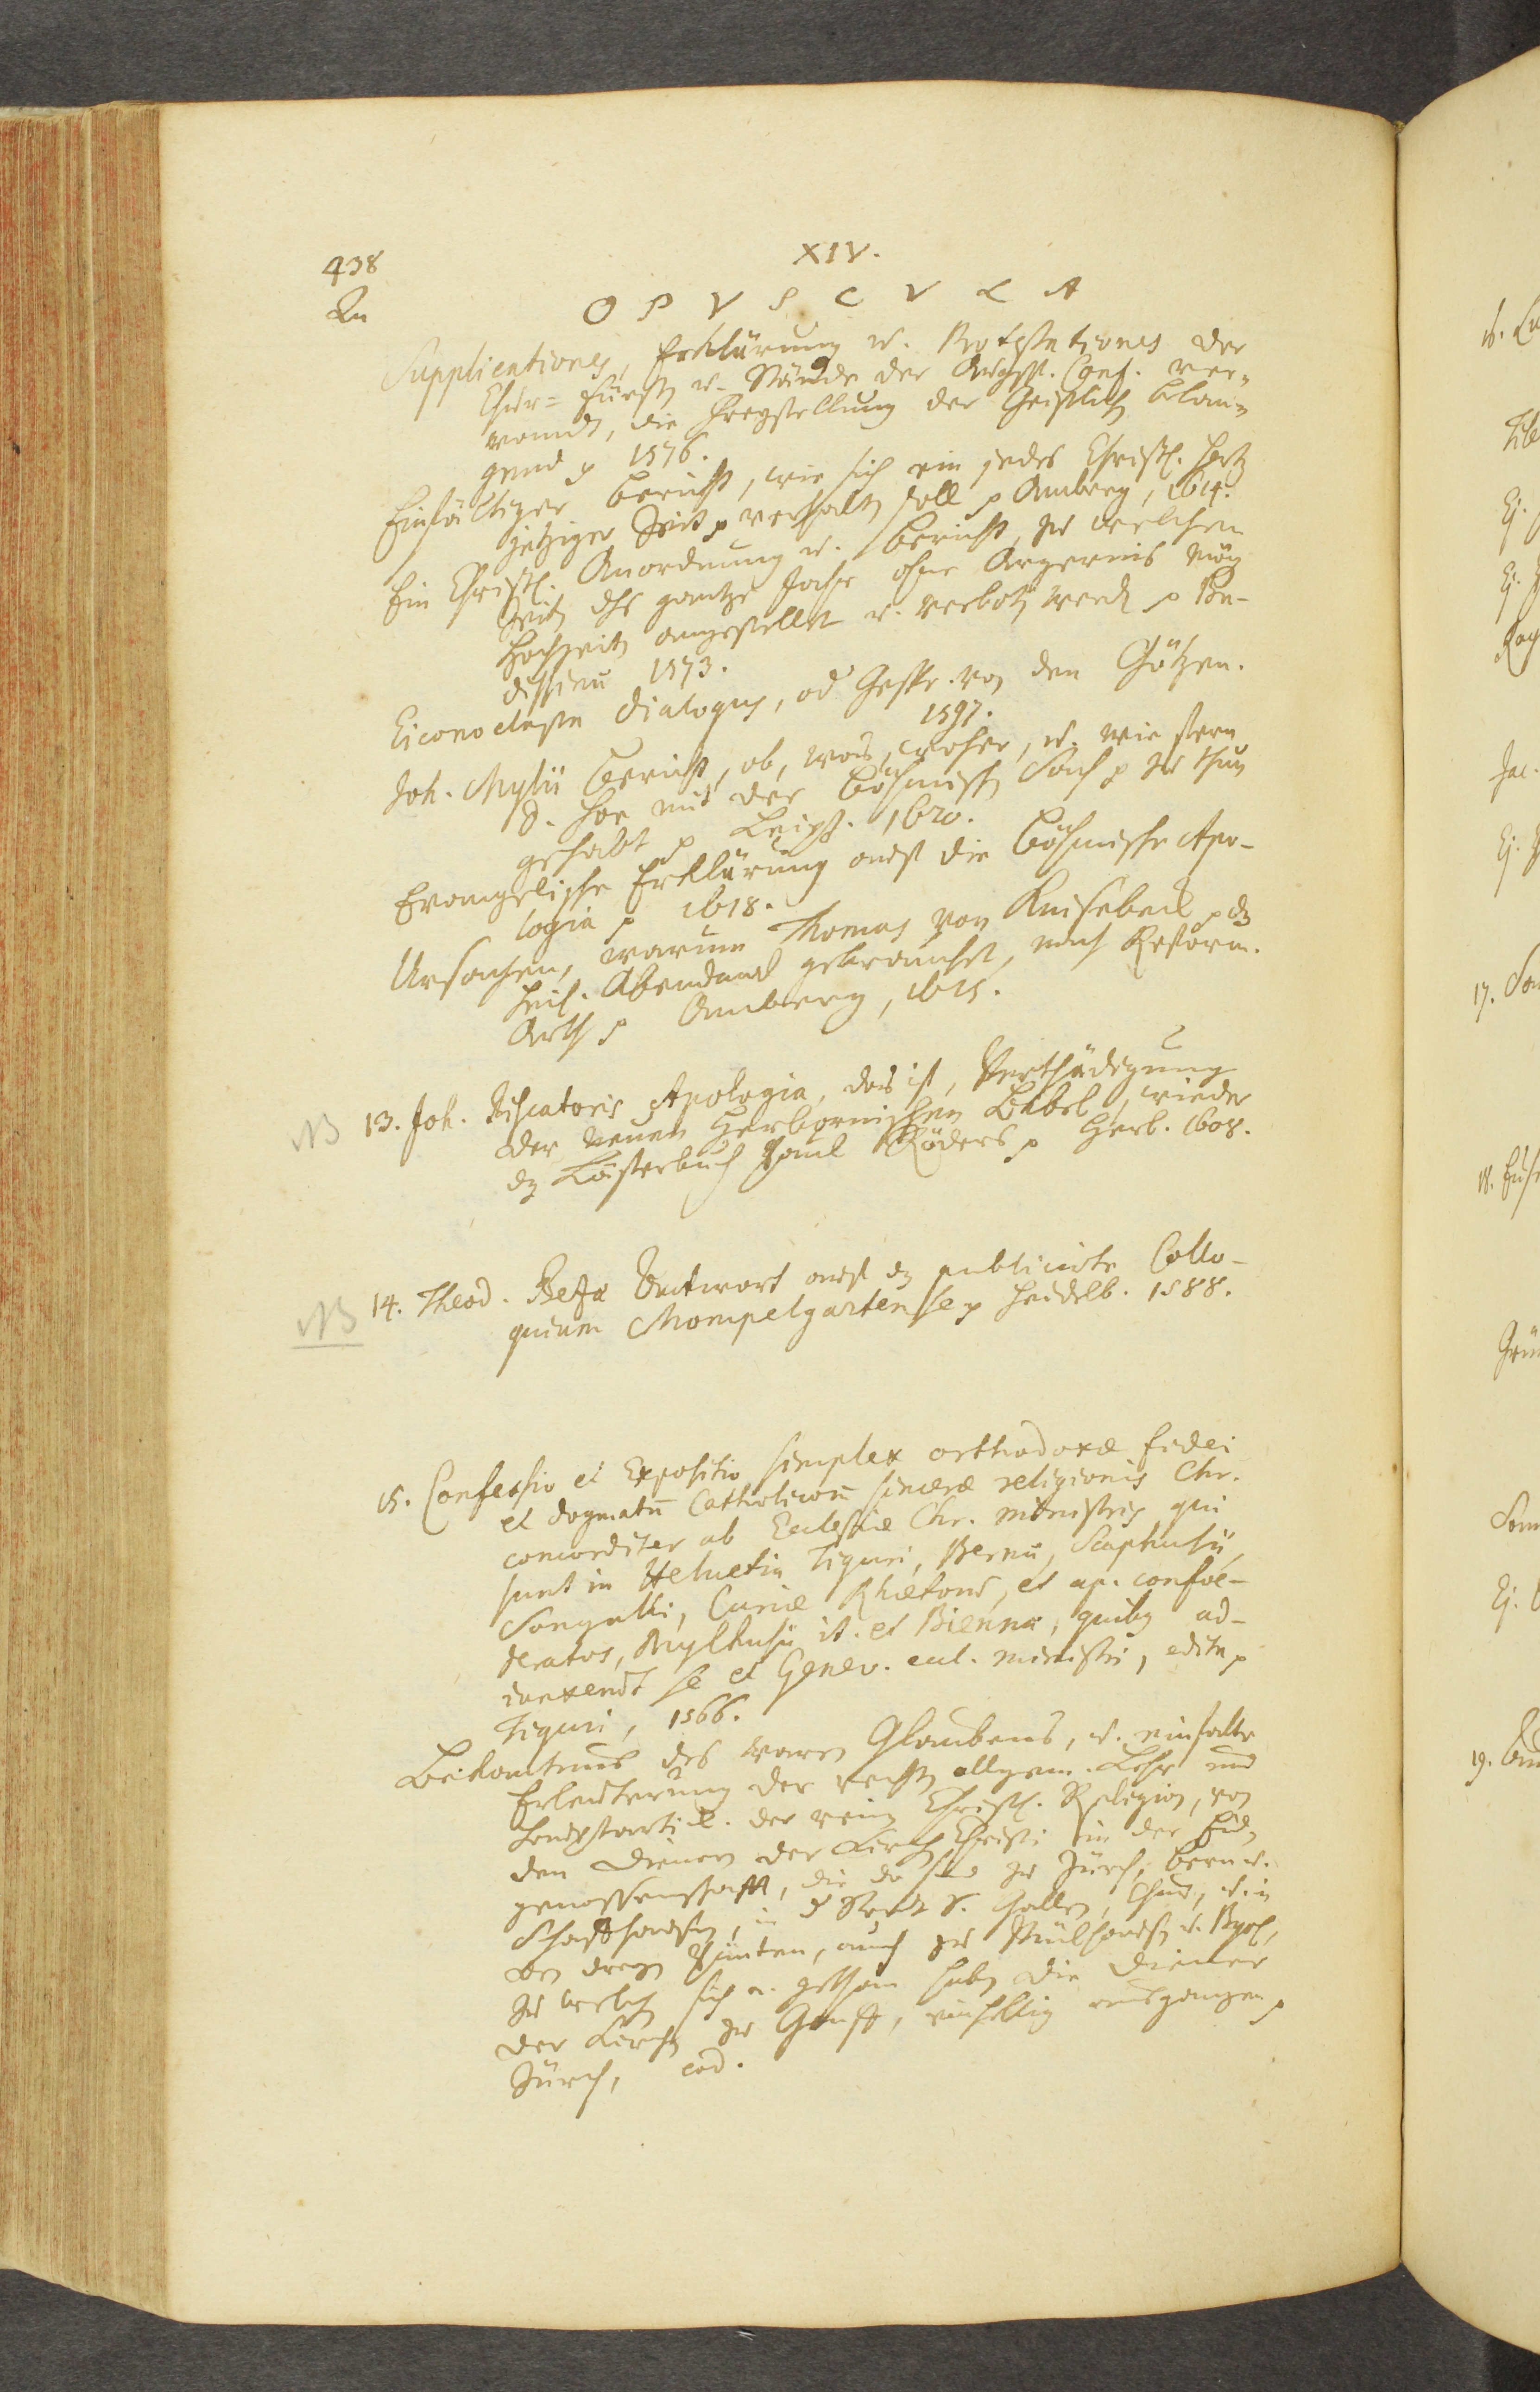 438
XIV.
Qu
OPVSCVLA
Supplicationes, Erklärung u. Protestationes der
Chur= Fürsten u. Stände der Augsp. Conf. ver=
wandt, die Freystellung der Geistlich. belan=
gend p 1576.
Einfältiger Bericht, wie sich ein jedes Christl. Hertz
jetziger Zeit p verhalten soll p Amberg, 1614.
Ein Christl. Anordnung u. Bericht, zu welchen
Zeiten dhs gantze Jahr ohne Ärgernis mög
Hochzeiten angestellet u. verbotten werden p Bu-
dissinn 1573.
Eiconoclastae Dialogus, od Gespr. von den Götzen.
1597.
Joh. Mylii Bericht, ob, was, woher, u. wie fern
D. Hoe mit der Böhmisch. Sach p zu thun
gehabt p Leipz. 1620.
Evangelische Erklärung auf die Böhmische Apo-
logia p 1618.
Ursachen, warum Thomas von Knisebeck p dz
heil. Abendmal gebrauchet, nach Reform.
Arth p Amberg, 1615.
NB 13. Joh. Piscatoris Apologia, das ist, Verthädigung
der neuen Herbornischen Bibel, wieder
dz Lästerbuch Paul Röders p Herb. 1608.
NB 14. Theod. Bezæ Antwort auf dz publicirte Collo-
quium Mompelgartense p Heidelb. 1588.
15. Confessio et Expositio simplex orthodoxæ fidei
et dogmatũ Catholicorũ sinceræ religionis Chr.
concorditer ab Ecclesiæ Chr. ministris qui
sunt in Helvetia Tiguri, Bernæ, Scaphusii,
Sangalli, Curiæ Rhætorũ, et ap. confoe-
deratos, Mylhusii it. et Biennæ, quibg ad-
iunxerũt se et Genev. eccl. ministri, edita p
Tiguri, 1566.
Bekantnus des waren Glaubens, u. einfalte
Erleuterung der rechten allgem. Lehr und
Hauptarticl. der reinen Christl. Religion, von
den Dienern der Kirchen Christi in der Eid=
genossenschafft, die da sind zu Zürch, Bern u.
Schaffhausen, in d Stadt S. Gallen, Chur, u. in
den dreyen Pünten, auch zu Mülhausen u. Byel,
zu welchen sich a. gethan haben die Diener
der Kirchen zu Genff, einhellig ausgangen p
Zürch, eod.